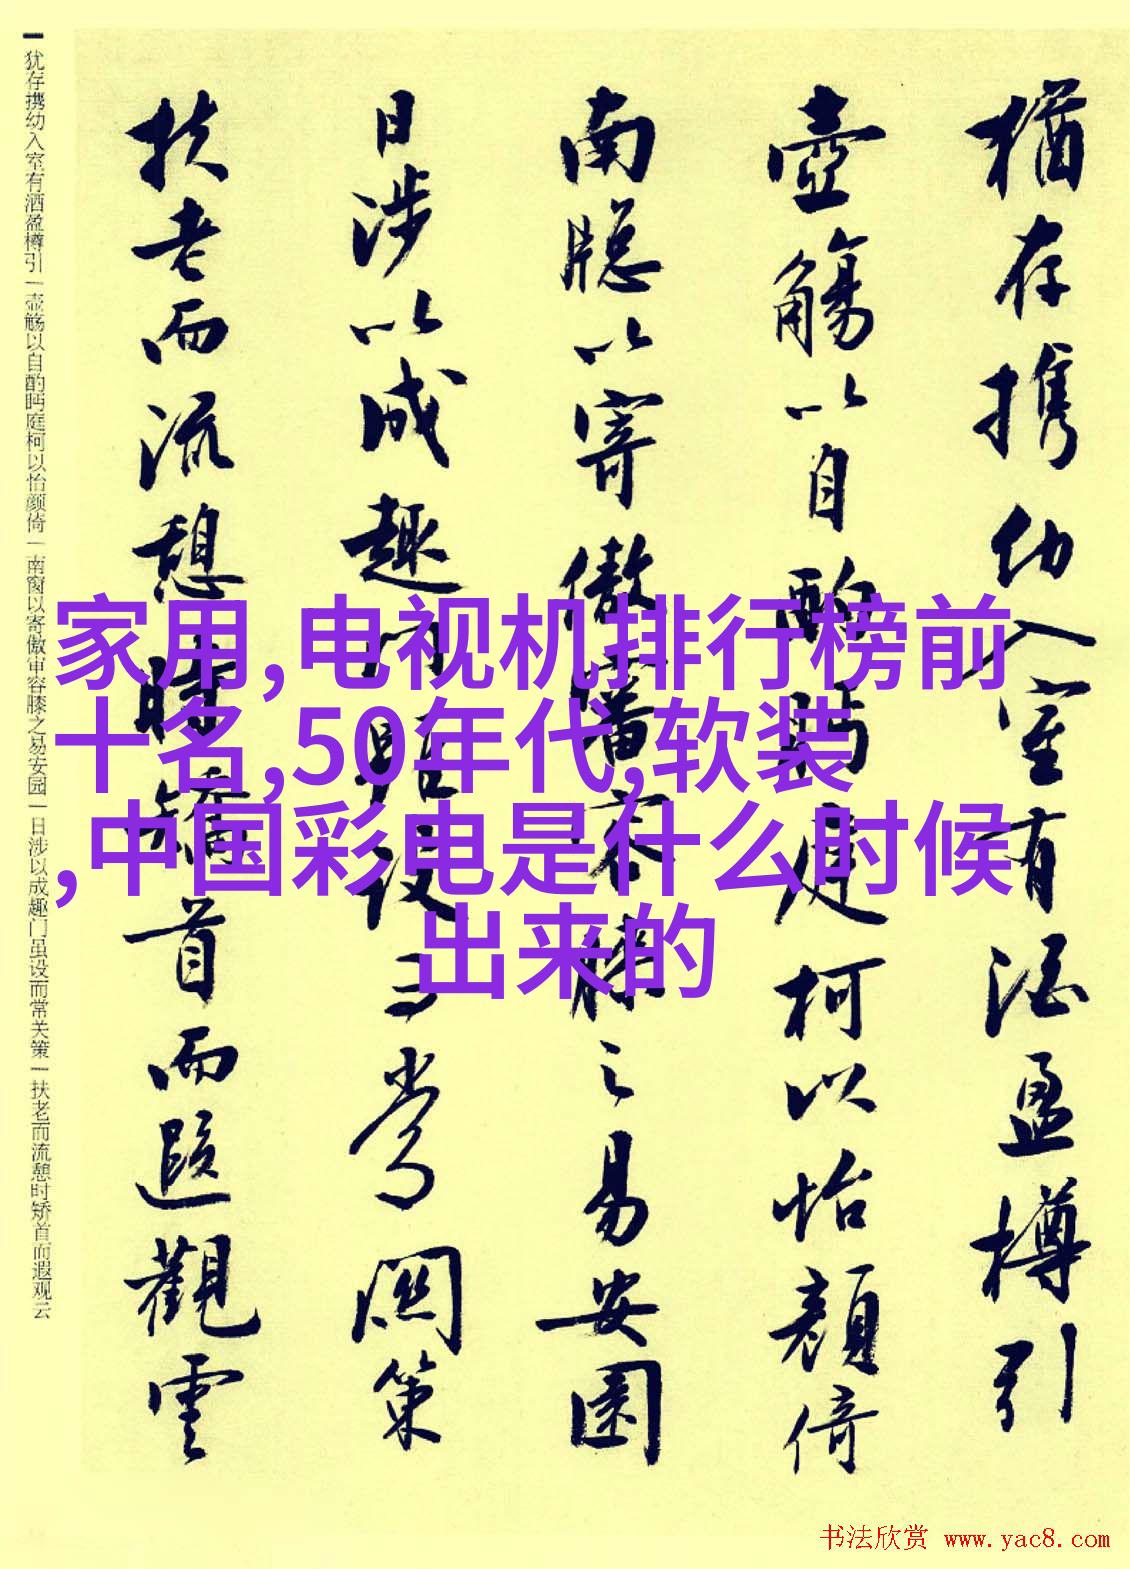 犹存携幼入室有酒盈樽引|壶觞以自酌眄庭柯以怡颜倚|南窗以寄傲审容膝之易安园|日涉以成趣门虽设而常关策|扶老而流憩时矫首而遐观云
猶存携幼入室有酒盈樽引
壺觴以自酌眄庭柯以怡顔倚
南牕以寄傲審容膝之易安園
日涉以成趣門雖設而常關策
扶老而流憩時矯首而遐觀雲
家用,电视机排行榜前
十名,50年代,软装
,中国彩电是什么时候
出来的
书法欣赏 www.yac8.com